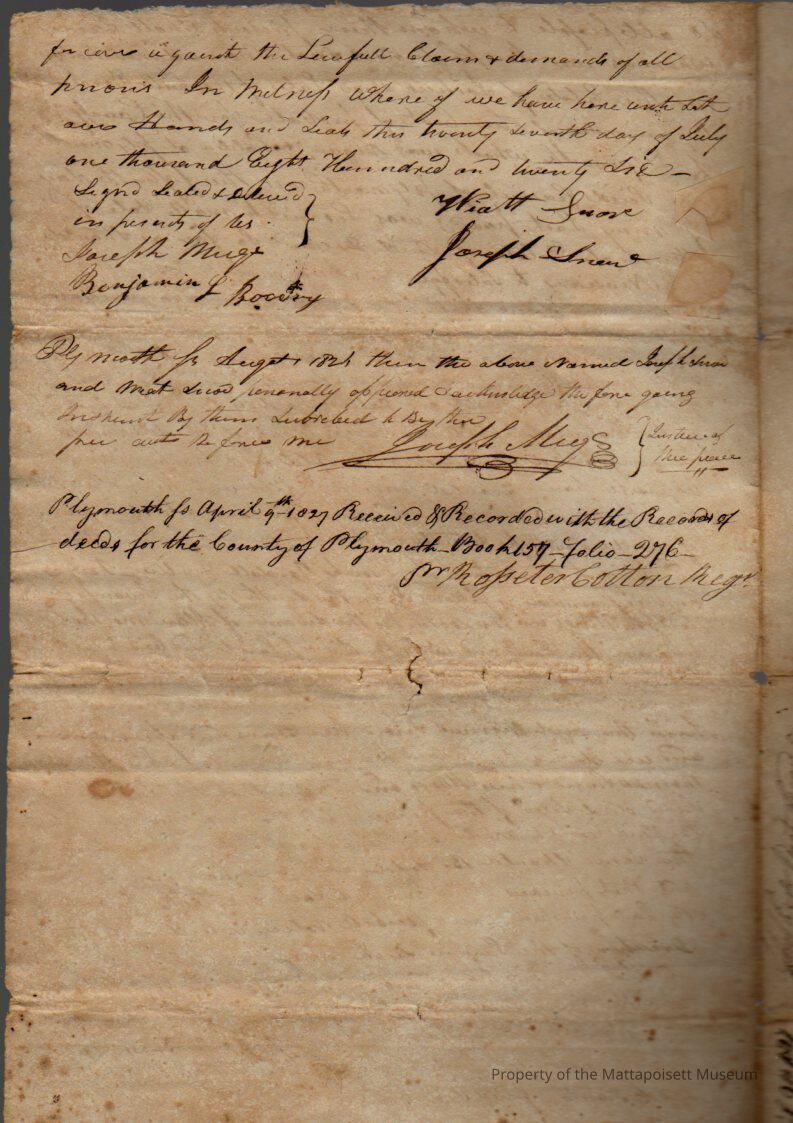 forever against the Lawfull Claims & demands of all
persons In Witness Where of we have here unto Set
our Hands and Seals this twenty Seventh day of July
one thousand Eight Hundred and twenty Six –
Signd Sealed &
in presents of us
Wiatt Snow
Joseph Snow
Joseph Meigs
Benjamin
Plymouth Ss August 1826 then the above Named Joseph Snow
and Wiat Snow personally appeared & acknowledge the fore going
Instrument By them Subscribed to Be their
free before me Joseph Meigs Justice of
the peace
Plymouth Ss April 9th 1827 Received & Recorded with the Records of
deeds for the County of Plymouth Book 157 folio 276
Pr Rosseter Cotton Regr
Property of the Mattapoisett Museum